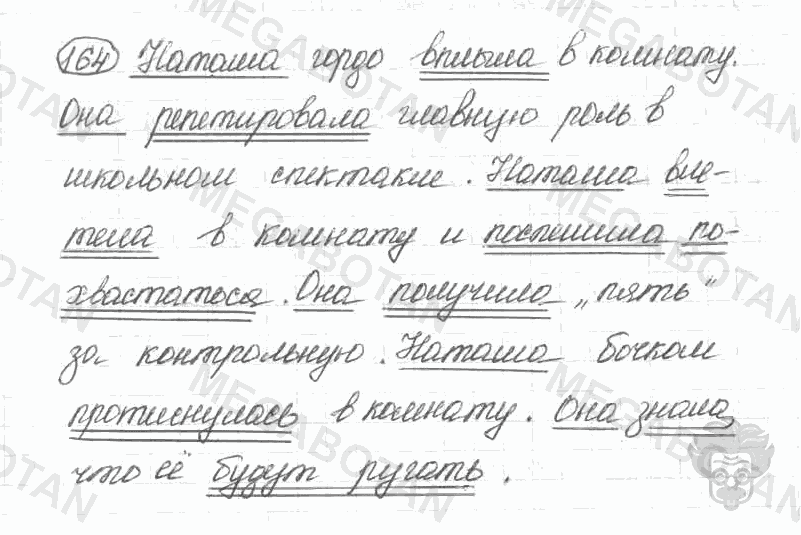 164 Наташа гордо вплыла в комнату.
Она репетировала главную роль в
школьном спектакле. Наташа вле-
тела в комнату и поспешила по-
хвастаться. Она получила „пять"
за контрольную. Наташа бочком
протиснулась в комнату. Она знала,
что её будут ругать.
MEGABOTAN